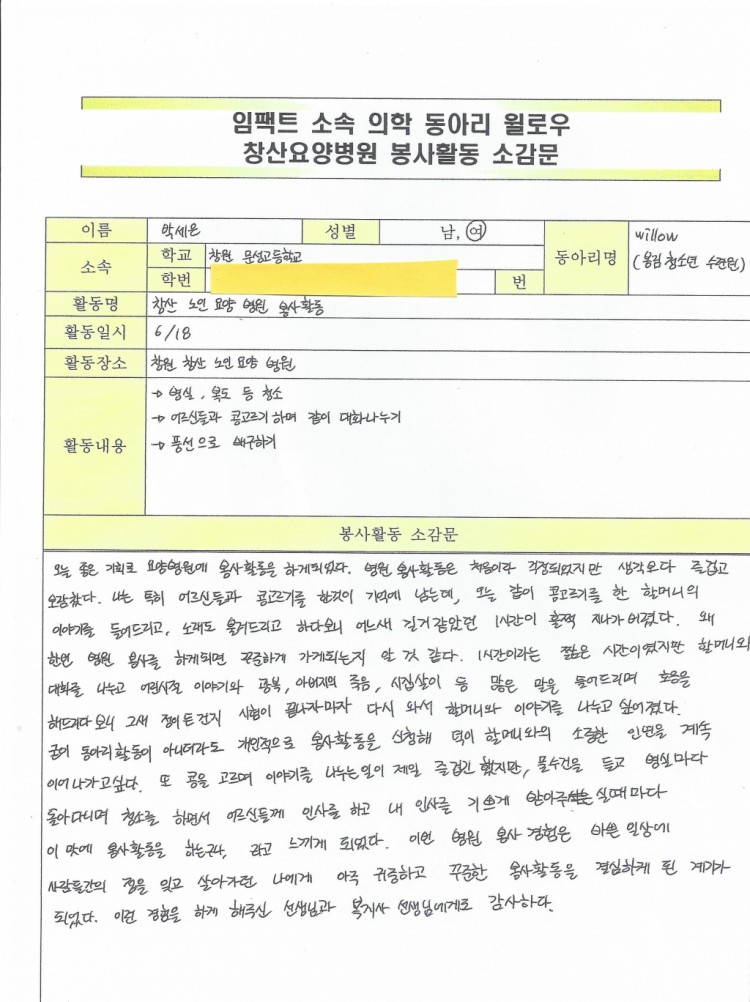 임팩트 소속 의학 동아리 윌로우
창산요양병원 봉사활동 소감문
이름 박세은 성별 남, 여 동아리명 willow (웅림 청소년 수련원)
소속 학교 창원 문성고등학교
학번 번
활동명 창산 노인 요양 병원 봉사활동
활동일시 6/18
활동장소 창원 창산 노인요양 병원
활동내용
→ 병실, 복도 등 청소
→ 어르신들과 콩고르기 하며 같이 대화나누기
→ 풍선으로 배구하기
봉사활동 소감문
오늘 좋은 기회로 요양병원에 봉사활동을 하게되었다. 병원 봉사활동은 처음이라 걱정되었지만 생각보다 즐겁고
보람찼다. 나는 특히 어르신들과 콩고르기를 한것이 기억에 남는데, 오늘 같이 콩고르기를 한 할머니의
이야기를 들어드리고, 노래도 불러드리고 하다보니 어느새 길거 같았던 1시간이 훌쩍 지나가버렸다. 왜
한번 병원 봉사를 하게되면 꾸준하게 가게되는지 알 것 같다. 1시간이라는 짧은 시간이였지만 할머니와
대화를 나누고 어린시절 이야기와 광복, 아버지의 죽음, 시집살이 등 많은 말을 들어드리며 호응을
해드리다 보니 그새 정이 든건지 시험이 끝나자마자 다시 와서 할머니와 이야기를 나누고 싶어졌다.
굳이 동아리활동이 아니더라도 개인적으로 봉사활동을 신청해 덕이 할머니와의 소중한 인연을 계속
이어나가고싶다. 또 콩을 고르며 이야기를 나누는일이 제일 즐겁긴 했지만, 물수건을 들고 병실마다
돌아다니며 청소를 하면서 어르신들께 인사를 하고 내 인사를 기쁘게 받아주실때마다
이 맛에 봉사활동을 하는구나, 라고 느끼게 되었다. 이번 병원 봉사 경험은 바쁜 일상에
사람들간의 정을 잊고 살아가던 나에게 아주 귀중하고 꾸준한 봉사활동을 결심하게 된 계기가
되었다. 이런 경험을 하게 해주신 선생님과 복지사 선생님에게도 감사하다.